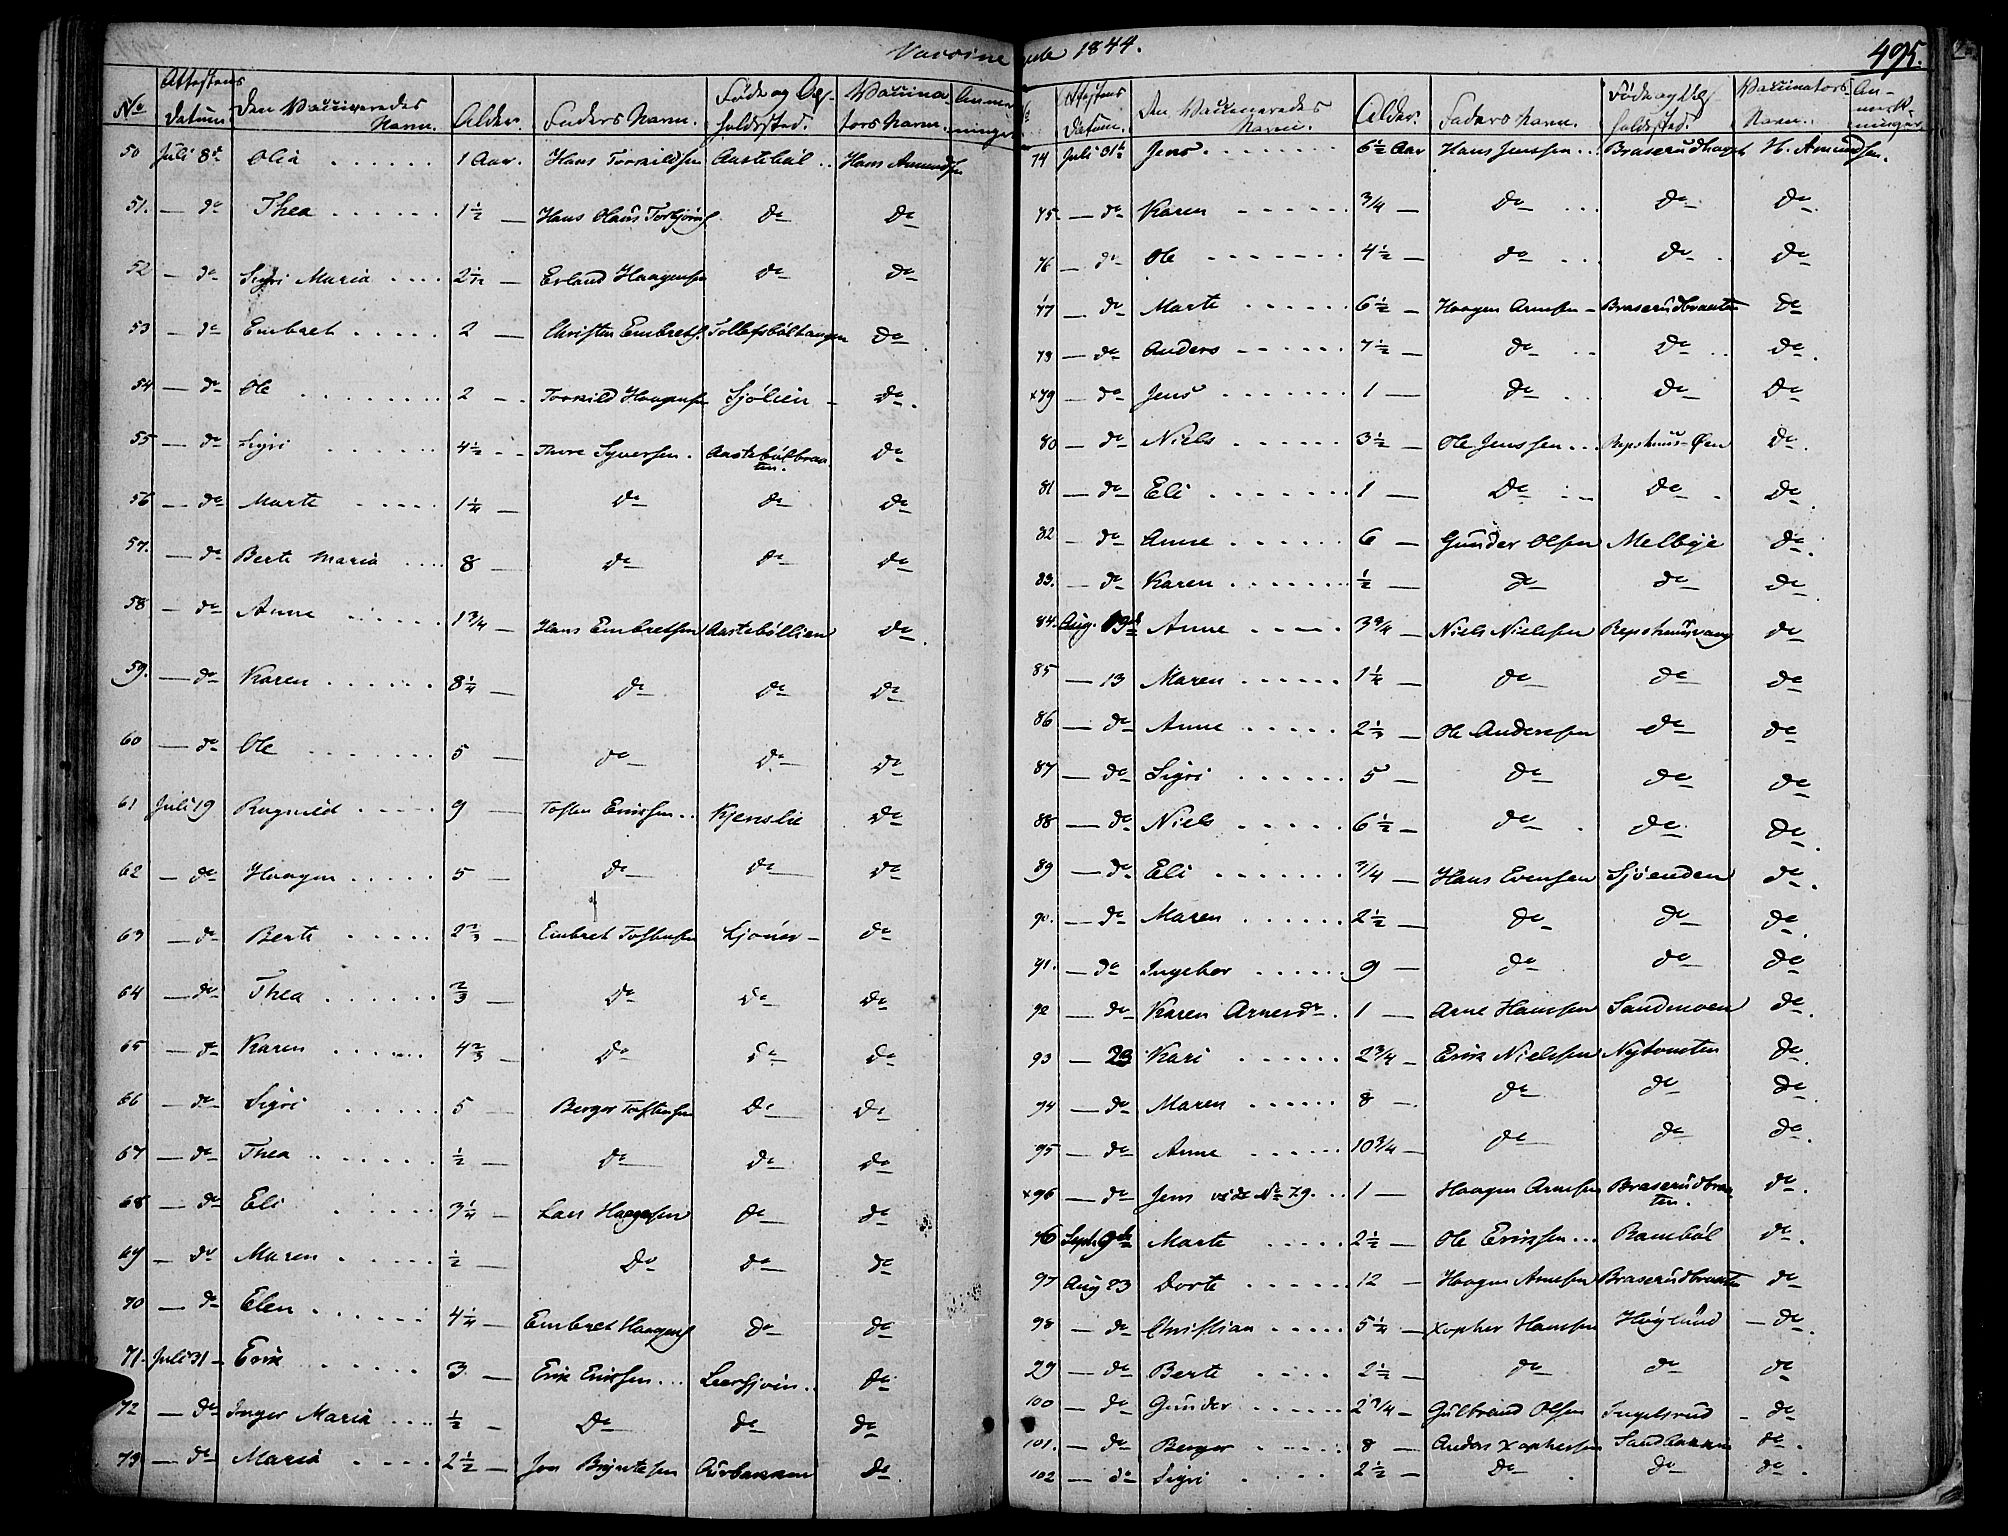 Vaccinerede 1844.
495.
No Attestens Datum. Den Vaccineredes Navn. Alder. Faders Navn. Føde og Opholdssted. Vaccinators Navn. Anmerkninger
50 Juli 8d Olia 1 Aar. Hans Torkildsen Aastebøl Hans Amundsen
51. — do Thea 1½ — Hans Olaus Torbjørns. do do
52 — do Sigri Maria — Erland Haagensen do do
53 — do Embret 2 — Christen Embrets. Tollefsbølhaugen do
54 — do Ole 2 — Torkild Haagensen Sjølien do
55 — do Sigri 4½ — Thore Syversen. Aastebølbraaten. do
56 — do Marte 1¼ — do do do
57. — do Berte Maria 8 — do do do
58 — do Anne 1¾ — Hans Embretsen Aastebøllien do
59. — do Karen 8¼ — do do do
60 — do Ole 5 — do do do
61 Juli 19 Ragnild 9 — Tosten Erikssen Kjenslie do
62 — do Haagen 5 — do do do
63 — do Berte 2⅔ — Embret Tostensen do
64 — do Thea ⅔ — do do do
65 — do Karen 4⅔ — do do do
66 — do Sigri 5 Berger Tostensen do do
67 — do Thea ½ — do do do
68 — do Eli 3¼ — Lars Haagensen do do
69 — do Maren ½ — do do do
70 — do Elen 4¼ — Embret Haagens. do do
71. Juli 31 Erik 3 — Erik Erikssen do
72 — do Inger Maria ½ — do do do
73 — do Maria 2½ — Jon do
No Attestens Datum. Den Vaccineredes Navn. Alder. Faders Navn. Føde og Opholdssted. Vaccinators Navn. Anmerkninger.
74 Juli 31te Jens 6½ Aar Hans Jenssen Braserudhaget H. Amundsen.
75 — do Karen ¾ — do do do
76 — do Ole 4½ — do do do
77 — do Marte 6½ — Haagen Arnesen Braserudbraaten do
78 — do Anders 7½ — do do do
x79 — do Jens 1 — do do do
80 — do Niels 3½ — Ole Jenssen Repshuus-Øen do
81 — do Eli 1 — do do do
82 — do Anne 6 — Gunder Olsen Melbye do
83. — do Karen ½ — do do do
84. Aug. Anne 3¾ — Niels Nielssen Repshuusvang do
85 — 13 Maren 1½ — do do do
86 — do Anne — Ole Anderssen do do
87 — do Sigri 5 — do do do
88 — do Niels 6½ — do do do
89 — do Eli ¾ — Hans Evensen Sjøenden do
90. — do Maren 2½ — do do do
91. — do Ingebor 9 — do do do
92 — do Karen Arnesdr. 1 — Arne Hanssen Sandmoen do
93 — 23 Kari 2¾ — Erik Nielssen Nytomten do
94 — do Maren 8 do do do
95 — do Anne 10¾ — do do do
x96 — do Jens vide No 79. 1 — Haagen Arnesen Braserudbraaten. do
96 Septr. 9de Marte 2½ — Ole Erikssen Rambøl do
97 Aug 23 Dorte 12 — Haagen Arnesen Braserudbraaten do
98 — do Christian — Xopher Hanssen Høglund — do
99 — do Berte 2½ — do do do
100 — do Gunder 2¾ — Gulbrand Olsen Ingelsrud do
101. — do Berger 8 — Anders Xophersen Sandbakken do
102 — do Sigri 2½ — do do do